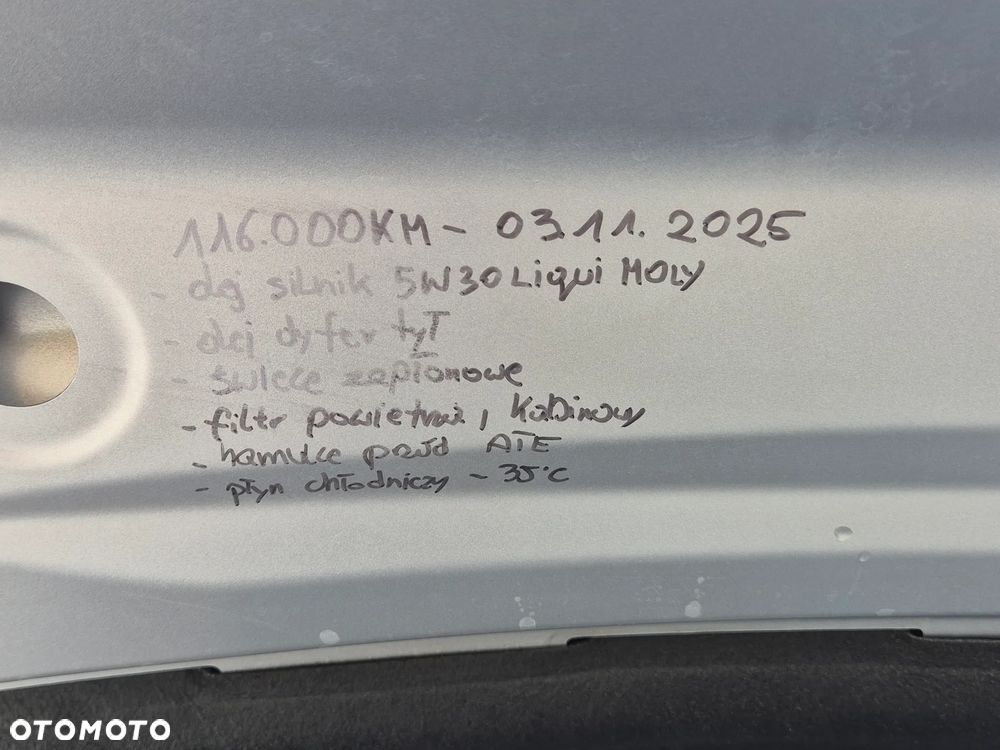 116.000KM - 03.11.2025
- olej silnik 5W30 Liqui MOLY
- olej dyfer tył
- świece zapłonowe
- filtr powietrza, Kabinowy
- hamulce przód ATE
- płyn chłodniczy -35°C
OTOMOTO